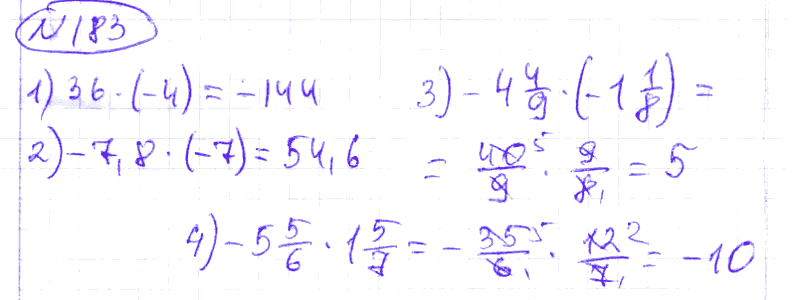 N 183
1) 36 · (-4) = -144
2) -7,8 · (-7) = 54,6
3) -4 4/9 · (-1 1/8) =
= 40 5/9 · 9/8 1 = 5
4) -5 5/6 · 1 5/7 = - 35 5/6 1 · 12 2/7 1 = -10